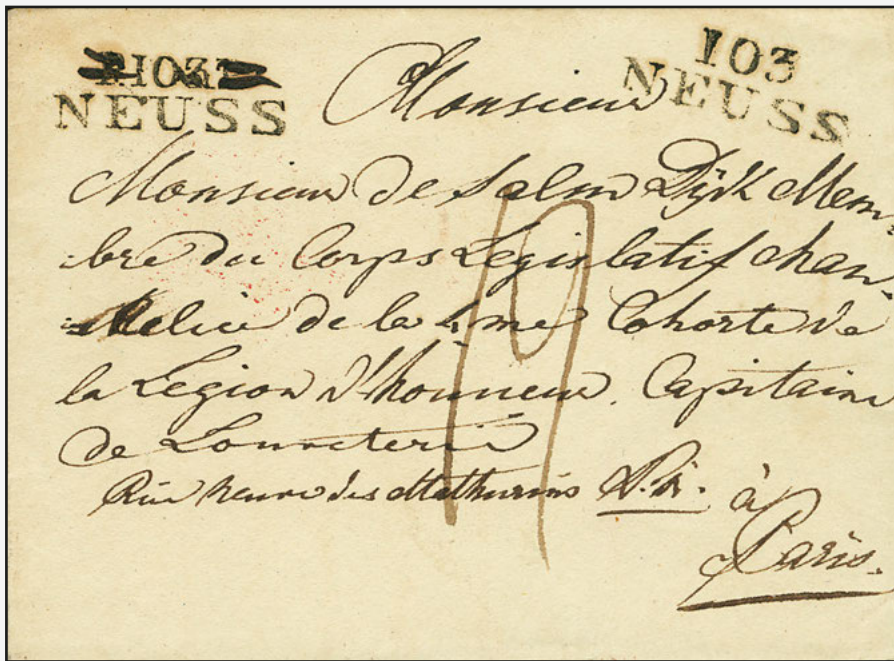 P.103.P.
NEUSS
103
NEUSS
Monsieur
Monsieur de Salm Dyck Mem-
bre du Corps Legislatif Chan-
celier de la 4me Cohorte de
la Legion d'honneur. Capitaine
de Louveterie
Rue neuve des Mathurins à
Paris.
19